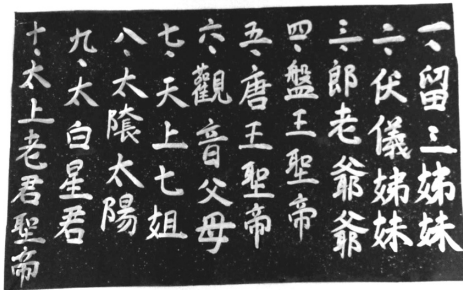 一、留三姊妹
二、伏儀姊妹
三、郎老爺爺
四、盤王聖帝
五、唐王聖帝
六、觀音父母
七、天上七姐
八、太陰太陽
九、太白星君
十、太上老君聖帝